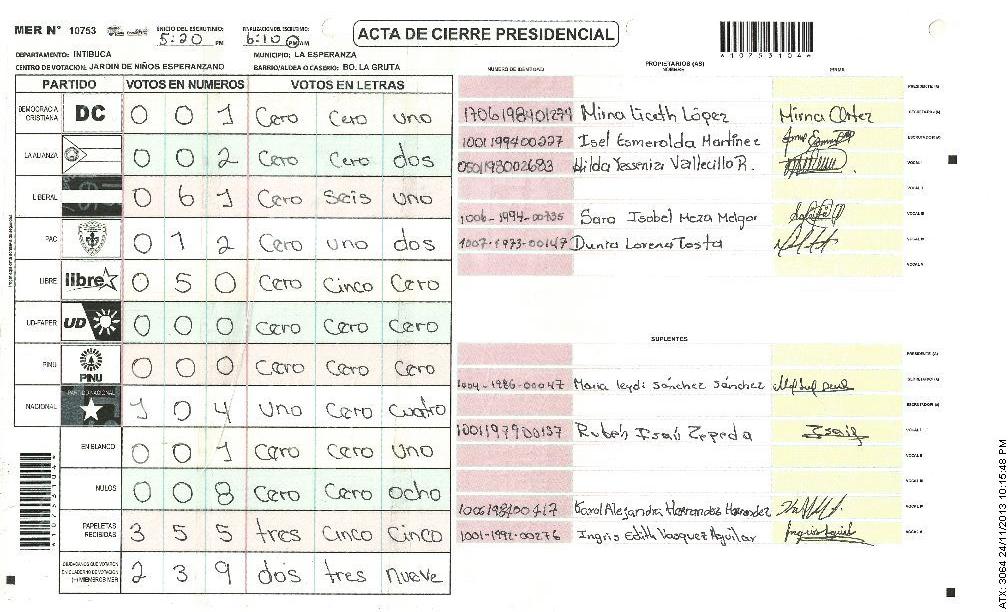 MER N° 10753 INICIO DEL ESCRUTINIO: 5:20 PM FINALIZACION DEL ESCRUTINIO: 6:10 PM AM
ACTA DE CIERRE PRESIDENCIAL
DEPARTAMENTO: INTIBUCA MUNICIPIO: LA ESPERANZA
CENTRO DE VOTACION: JARDIN DE NIÑOS ESPERANZANO BARRIO/ALDEA O CASERIO: BO. LA GRUTA
PARTIDO VOTOS EN NUMEROS VOTOS EN LETRAS
DEMOCRACIA CRISTIANA DC 0 0 1 Cero Cero uno
LA ALIANZA 0 0 2 Cero Cero dos
LIBERAL 0 6 1 Cero seis uno
PAC 0 1 2 Cero uno dos
LIBRE libre 0 5 0 Cero Cinco Cero
UD-FAPER UD 0 0 0 Cero Cero Cero
PINU PINU 0 0 0 Cero Cero Cero
NACIONAL PARTIDO NACIONAL 1 0 4 uno Cero cuatro
EN BLANCO 0 0 1 Cero Cero uno
NULOS 0 0 8 Cero Cero ocho
PAPELETAS RECIBIDAS 3 5 5 tres Cinco Cinco
CIUDADANOS QUE VOTARON EN CUADERNO DE VOTACION (+) MIEMBROS MER 2 3 9 dos tres nueve
PROPIETARIOS (AS)
NUMERO DE IDENTIDAD NOMBRE FIRMA
PRESIDENTE (A)
1706198401274 Mirna Liceth López Mirna SECRETARIO (A)
1001199400227 Isel Esmeralda Martínez ESCRUTADOR (A)
0501198002683 Hilda Yessenia Vallecillo R. VOCAL I
VOCAL II
1006-1994-00735 Sara Isabel Meza Melgar VOCAL III
1007-1973-00147 Dunia Lorena Tosta VOCAL IV
VOCAL V
SUPLENTES
PRESIDENTE (A)
1004-1986-00047 Maria leydi Sánchez Sánchez SECRETARIO (A)
ESCRUTADOR (A)
1001197900137 Rubén Isaí Zepeda VOCAL I
VOCAL II
VOCAL III
1006198400417 Karol Alejandra Hernandez Hernandez VOCAL IV
1001-1992-00276 Ingris Edith Vasquez Aguilar VOCAL V
ATX: 3064 24/11/2013 10:15:48 PM